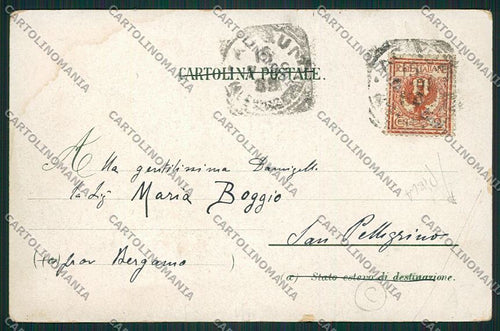 CARTOLINA POSTALE.
Alla gentilissima Damigella
la Sig. Maria Boggio
San Pellegrino
(prov Bergamo)
(a) Stato estero di destinazione.
CARTOLINOMANIA